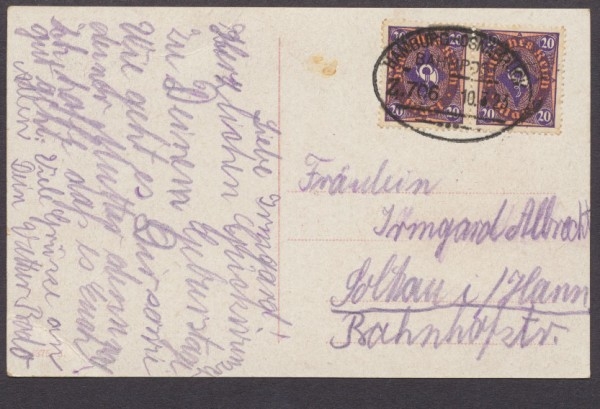 Liebe Irmgard!
Herzlichen Glückwunsch
zu Deinem Geburtstag
Wie geht es Dir sowie
deiner Mutter denn, ich
hoffe das es Euch
gut geht. Viele Grüsse an
allen Dein Vetter
HAMBURG-OSNABRÜCK
BAHNPOST
Z. 706
10.
Deutsches Reich
20 20 20 20
Fräulein
Irmgard Albrecht
Soltau i/Hann
Bahnhofstr.